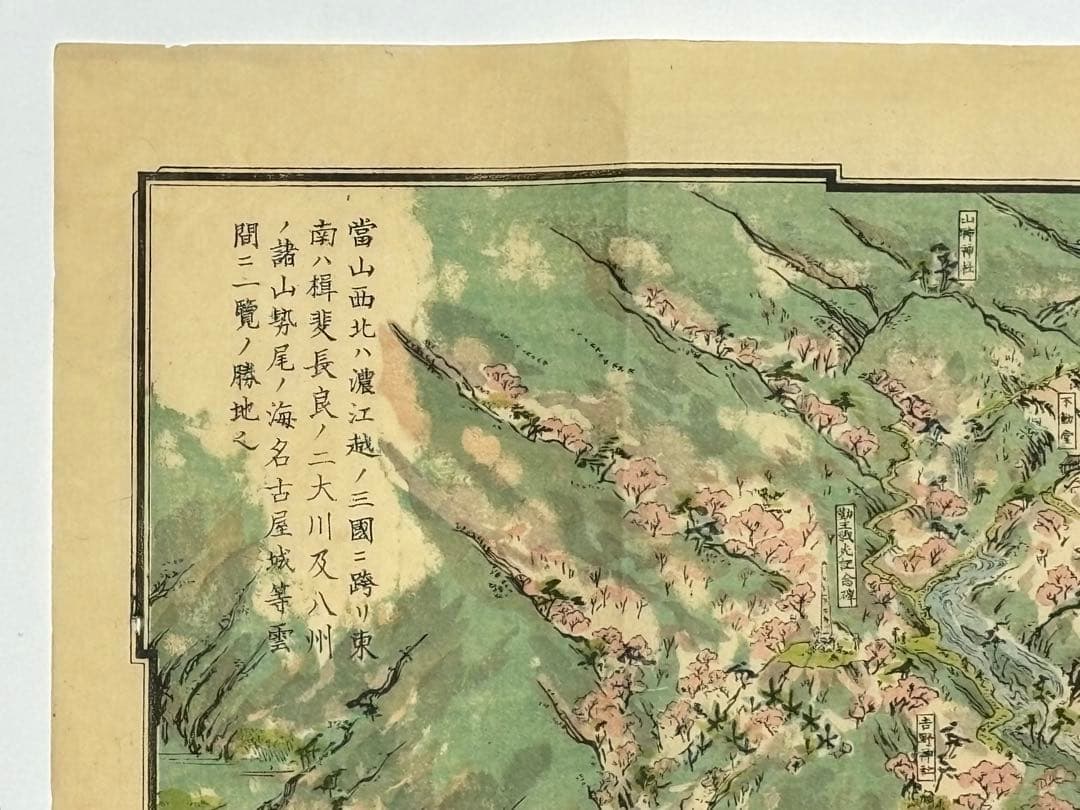 當山西北ハ濃江越ノ三國ニ跨リ東
南ハ楫斐長良ノ二大川及八州
ノ諸山勢尾ノ海名古屋城等雲
間ニ一覽ノ勝地之
山神社
不動堂
勤王誠忠記念碑
吉野神社